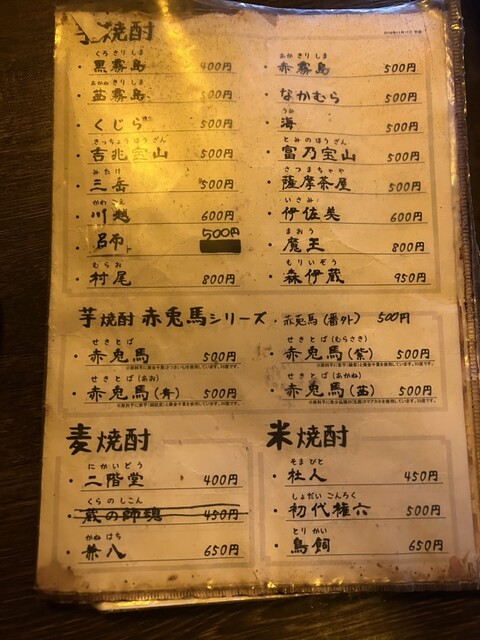 芋焼酎
くろきりしま
・黒霧島 400円
あかねきりしま
・茜霧島 500円
・くじら 500円
きっちょうほうざん
・吉兆宝山 500円
みたけ
・三岳 500円
かわごえ
・川越 600円
・呂布 500円
むらお
・村尾 800円
あかきりしま
・赤霧島 500円
・なかむら 500円
うみ
・海 500円
とみのほうざん
・富乃宝山 500円
さつまちゃや
・薩摩茶屋 500円
いさみ
・伊佐美 600円
まおう
・魔王 800円
もりいぞう
・森伊蔵 950円
芋焼酎 赤兎馬シリーズ ・赤兎馬(番外) 500円
せきとば
・赤兎馬 500円
せきとば(むらさき)
・赤兎馬(紫) 500円
せきとば(あお)
・赤兎馬(青) 500円
せきとば(あかね)
・赤兎馬(茜) 500円
麦焼酎
にかいどう
・二階堂 400円
くらのしこん
・蔵の師魂 450円
かねはち
・兼八 650円
米焼酎
そまびと
・杜人 450円
しょだいごんろく
・初代権六 500円
とりかい
・鳥飼 650円